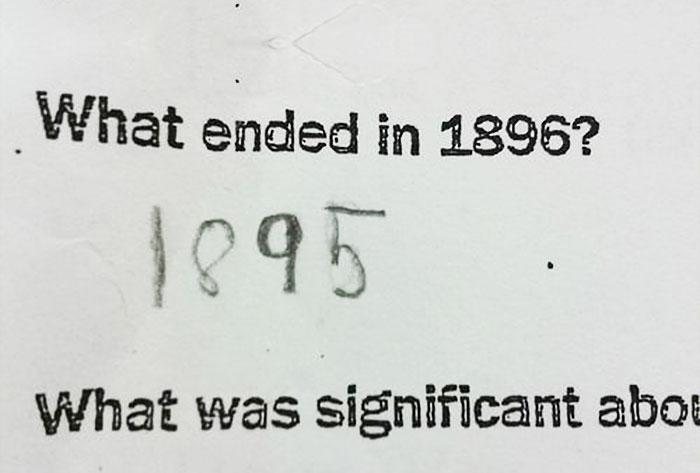 What ended in 1896?
1895
What was significant